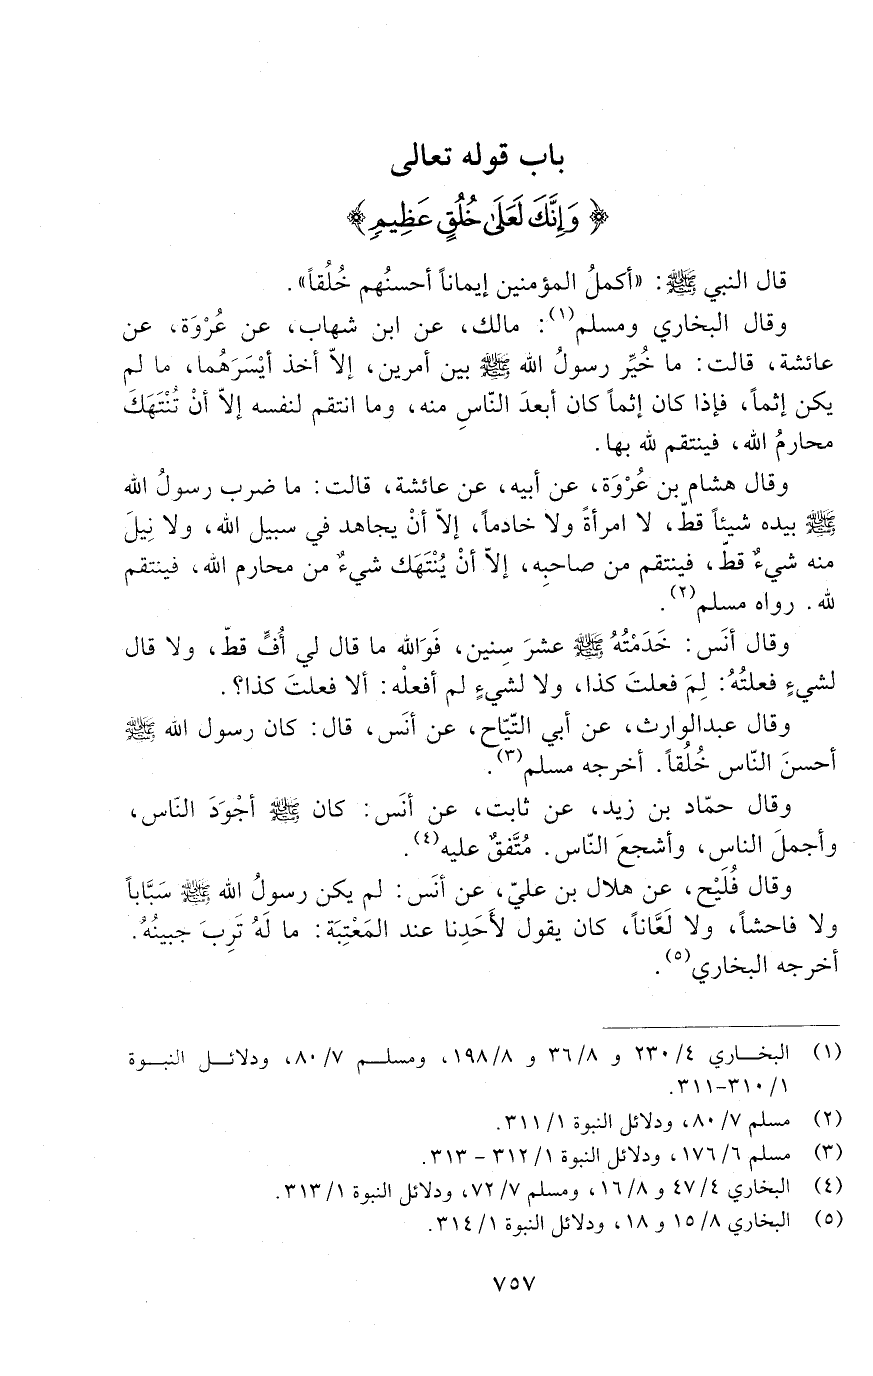 باب قوله تعالى
﴿ وَإِنَّكَ لَعَلَىٰ خُلُقٍ عَظِيمٍ ﴾
قال النبي ﷺ: «أكملُ المؤمنين إيماناً أحسنُهم خُلُقاً».
وقال البخاري ومسلم(١): مالك، عن ابن شهاب، عن عُرْوَة، عن
عائشة، قالت: ما خُيِّر رسولُ الله ﷺ بين أمرين، إلاّ أخذ أيْسَرَهُما، ما لم
يكن إثماً، فإذا كان إثماً كان أبعدَ النّاسِ منه، وما انتقم لنفسه إلاّ أنْ تُنْتَهَكَ
محارمُ الله، فينتقم لله بها.
وقال هشام بن عُرْوَة، عن أبيه، عن عائشة، قالت: ما ضرب رسولُ الله
ﷺ بيده شيئاً قطّ، لا امرأةً ولا خادماً، إلاّ أنْ يجاهد في سبيل الله، ولا نِيلَ
منه شيءٌ قطّ، فينتقم من صاحبِه، إلاّ أنْ يُنْتَهَك شيءٌ من محارم الله، فينتقم
لله. رواه مسلم(٢).
وقال أنَس: خَدَمْتُهُ ﷺ عشرَ سِنين، فَوَالله ما قال لي أُفٍّ قطّ، ولا قال
لشيءٍ فعلتُهُ: لِمَ فعلتَ كذا، ولا لشيءٍ لم أفعلْه: ألا فعلتَ كذا؟.
وقال عبدالوارث، عن أبي التّيّاح، عن أنَس، قال: كان رسول الله ﷺ
أحسنَ النّاس خُلُقاً. أخرجه مسلم(٣).
وقال حمّاد بن زيد، عن ثابت، عن أنَس: كان ﷺ أجْوَدَ النّاس،
وأجملَ الناس، وأشجعَ النّاس. مُتَّفقٌ عليه(٤).
وقال فُلَيْح، عن هلال بن عليّ، عن أنَس: لم يكن رسولُ الله ﷺ سَبَّاباً
ولا فاحشاً، ولا لَعَّاناً، كان يقول لأَحَدِنا عند المَعْتِبَة: ما لَهُ تَرِبَ جبينُهُ.
أخرجه البخاري(٥).
(١) البخاري ٢٣٠/٤ و ٣٦/٨ و ١٩٨/٨، ومسلم ٨٠/٧، ودلائل النبوة
٣١٠/١-٣١١.
(٢) مسلم ٨٠/٧، ودلائل النبوة ٣١١/١.
(٣) مسلم ١٧٦/٦، ودلائل النبوة ٣١٢/١ - ٣١٣.
(٤) البخاري ٤٧/٤ و ١٦/٨، ومسلم ٧٢/٧، ودلائل النبوة ٣١٣/١.
(٥) البخاري ١٥/٨ و ١٨، ودلائل النبوة ٣١٤/١.
٧٥٧